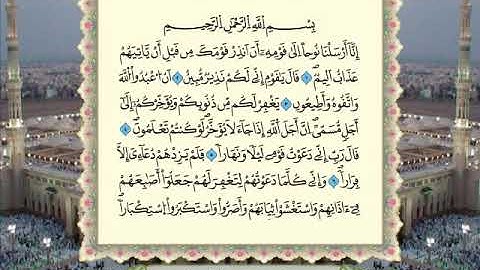 بِسْمِ اللَّهِ الرَّحْمَٰنِ الرَّحِيمِ
إِنَّا أَرْسَلْنَا نُوحًا إِلَىٰ قَوْمِهِ أَنْ أَنذِرْ قَوْمَكَ مِن قَبْلِ أَن يَأْتِيَهُمْ
عَذَابٌ أَلِيمٌ ١ قَالَ يَٰقَوْمِ إِنِّي لَكُمْ نَذِيرٌ مُّبِينٌ ٢ أَنُ اعْبُدُوا اللَّهَ
وَاتَّقُوهُ وَأَطِيعُونِ ٣ يَغْفِرْ لَكُم مِّن ذُنُوبِكُمْ وَيُؤَخِّرْكُمْ إِلَىٰ
أَجَلٍ مُّسَمًّى إِنَّ أَجَلَ اللَّهِ إِذَا جَاءَ لَا يُؤَخَّرُ لَوْ كُنتُمْ تَعْلَمُونَ ٤
قَالَ رَبِّ إِنِّي دَعَوْتُ قَوْمِي لَيْلًا وَنَهَارًا ٥ فَلَمْ يَزِدْهُمْ دُعَاءِيَ إِلَّا
فِرَارًا ٦ وَإِنِّي كُلَّمَا دَعَوْتُهُمْ لِتَغْفِرَ لَهُمْ جَعَلُوا أَصَٰبِعَهُمْ
فِي ءَاذَانِهِمْ وَاسْتَغْشَوْا ثِيَابَهُمْ وَأَصَرُّوا وَاسْتَكْبَرُوا اسْتِكْبَارًا